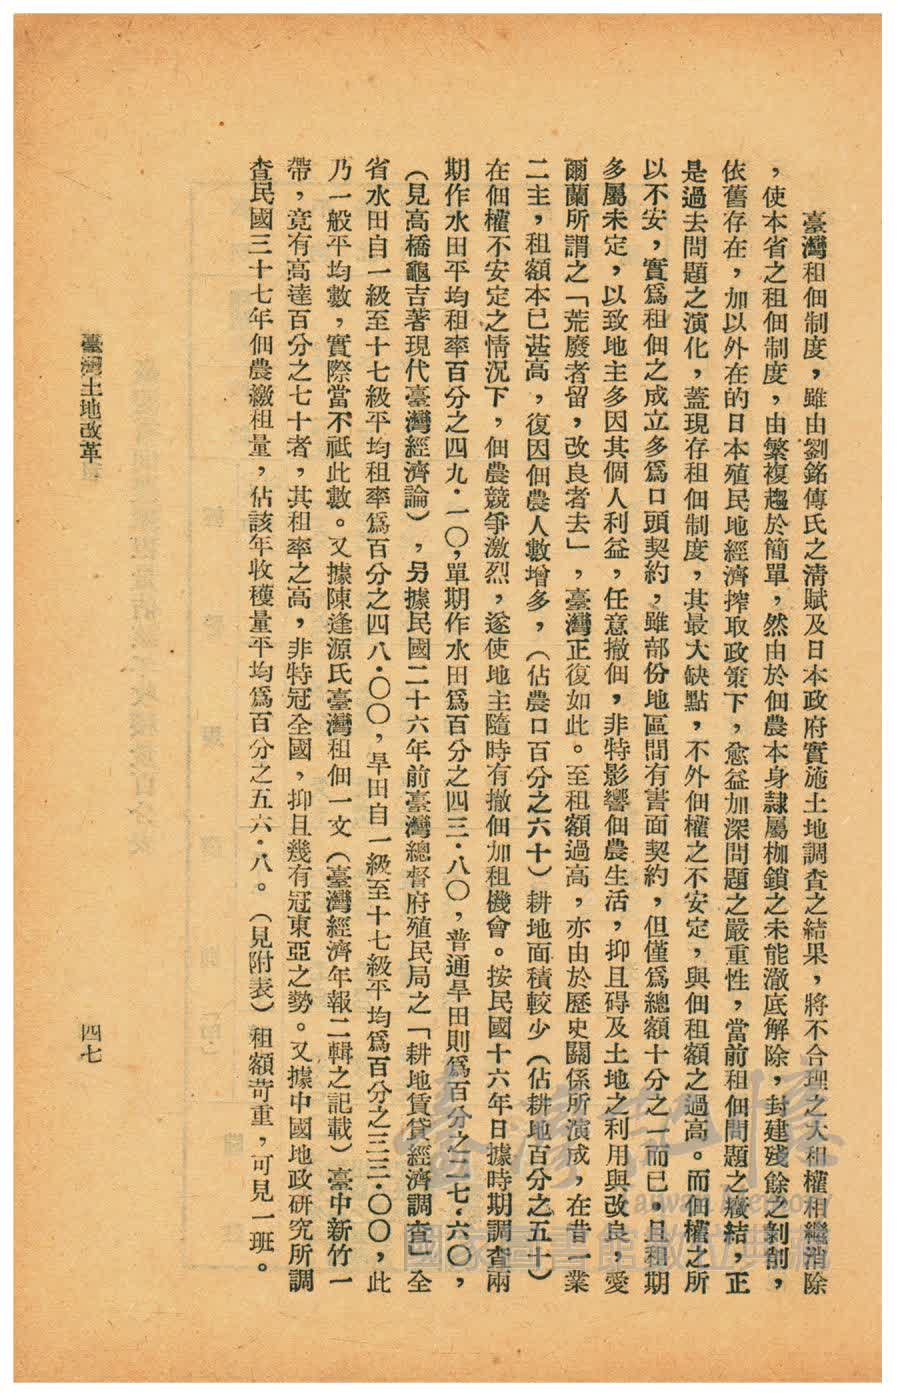 臺灣租佃制度，雖由劉銘傳氏之清賦及日本政府實施土地調查之結果，將不合理之大租權相繼消除
，使本省之租佃制度，由繁複趨於簡單，然由於佃農本身隸屬枷鎖之未能澈底解除，封建殘餘之剝削，
依舊存在，加以外在的日本殖民地經濟搾取政策下，愈益加深問題之嚴重性，當前租佃問題之癥結，正
是過去問題之演化，蓋現存租佃制度，其最大缺點，不外佃權之不安定，與佃租額之過高。而佃權之所
以不安，實爲租佃之成立多爲口頭契約，雖部份地區間有書面契約，但僅爲總額十分之一而已，且租期
多屬未定，以致地主多因其個人利益，任意撤佃，非特影響佃農生活，抑且碍及土地之利用與改良，愛
爾蘭所謂之「荒廢者留，改良者去」，臺灣正復如此。至租額過高，亦由於歷史關係所演成，在昔一業
二主，租額本已甚高，復因佃農人數增多，（佔農口百分之六十）耕地面積較少（佔耕地百分之五十）
在佃權不安定之情況下，佃農競爭激烈，遂使地主隨時有撤佃加租機會。按民國十六年日據時期調查兩
期作水田平均租率百分之四九·一〇，單期作水田爲百分之四三·八〇，普通旱田則爲百分之二七·六〇，
（見高橋龜吉著現代臺灣經濟論），另據民國二十六年前臺灣總督府殖民局之「耕地賃貸經濟調查」全
省水田自一級至十七級平均租率爲百分之四八·〇〇，旱田自一級至十七級平均爲百分之三三·〇〇，此
乃一般平均數，實際當不祗此數。又據陳逢源氏臺灣租佃一文（臺灣經濟年報二輯之記載）臺中新竹一
帶，竟有高達百分之七十者，其租率之高，非特冠全國，抑且幾有冠東亞之勢。又據中國地政研究所調
查民國三十七年佃農繳租量，佔該年收穫量平均爲百分之五六·八。（見附表）租額苛重，可見一班。
臺灣土地改革
四七
Taiwan Memory
國家圖書館數位典藏